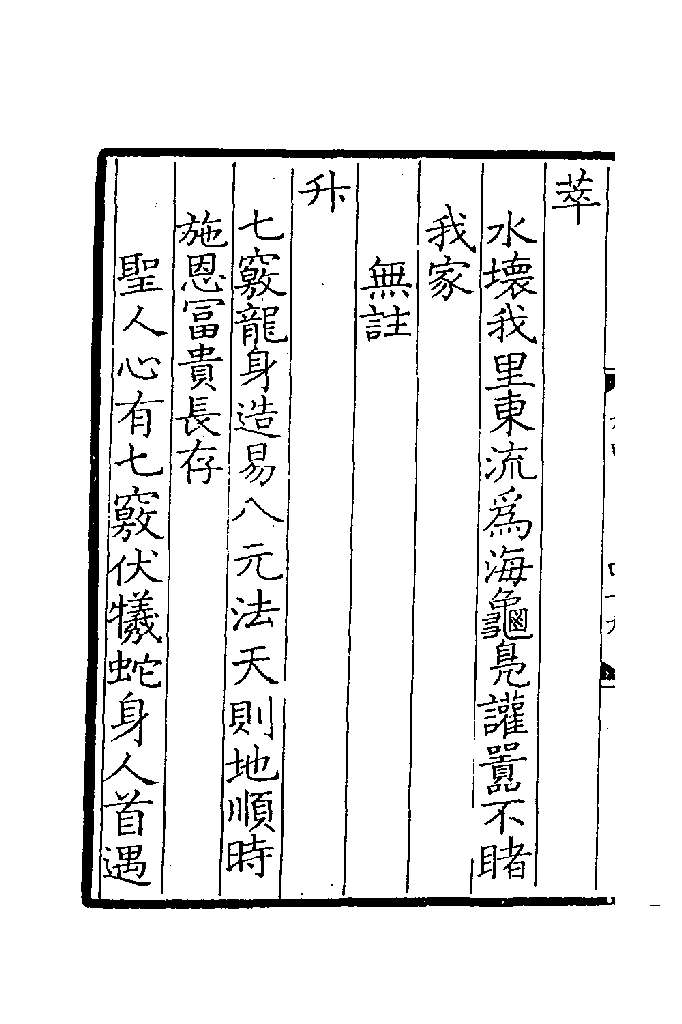 萃
水壞我里東流爲海龜鳧讙嚚不睹
我家
無註
升
七竅龍身造易八元法天則地順時
施恩冨貴長存
聖人心有七竅伏犧蛇身人首遇